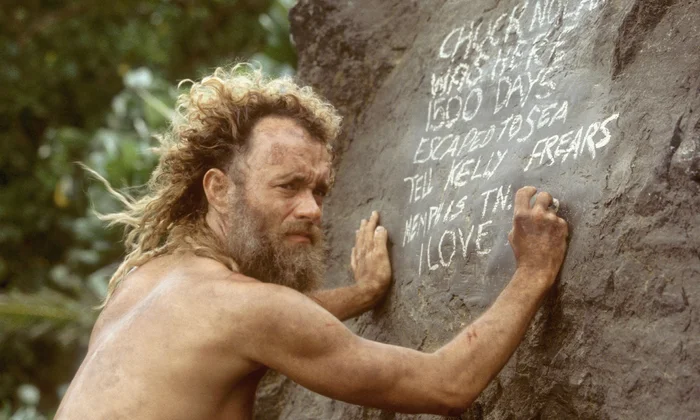 CHUCK NOLA
WAS HERE
1500 DAYS
ESCAPED TO SEA
TELL KELLY FREARS
MEMPHIS TN.
I LOVE